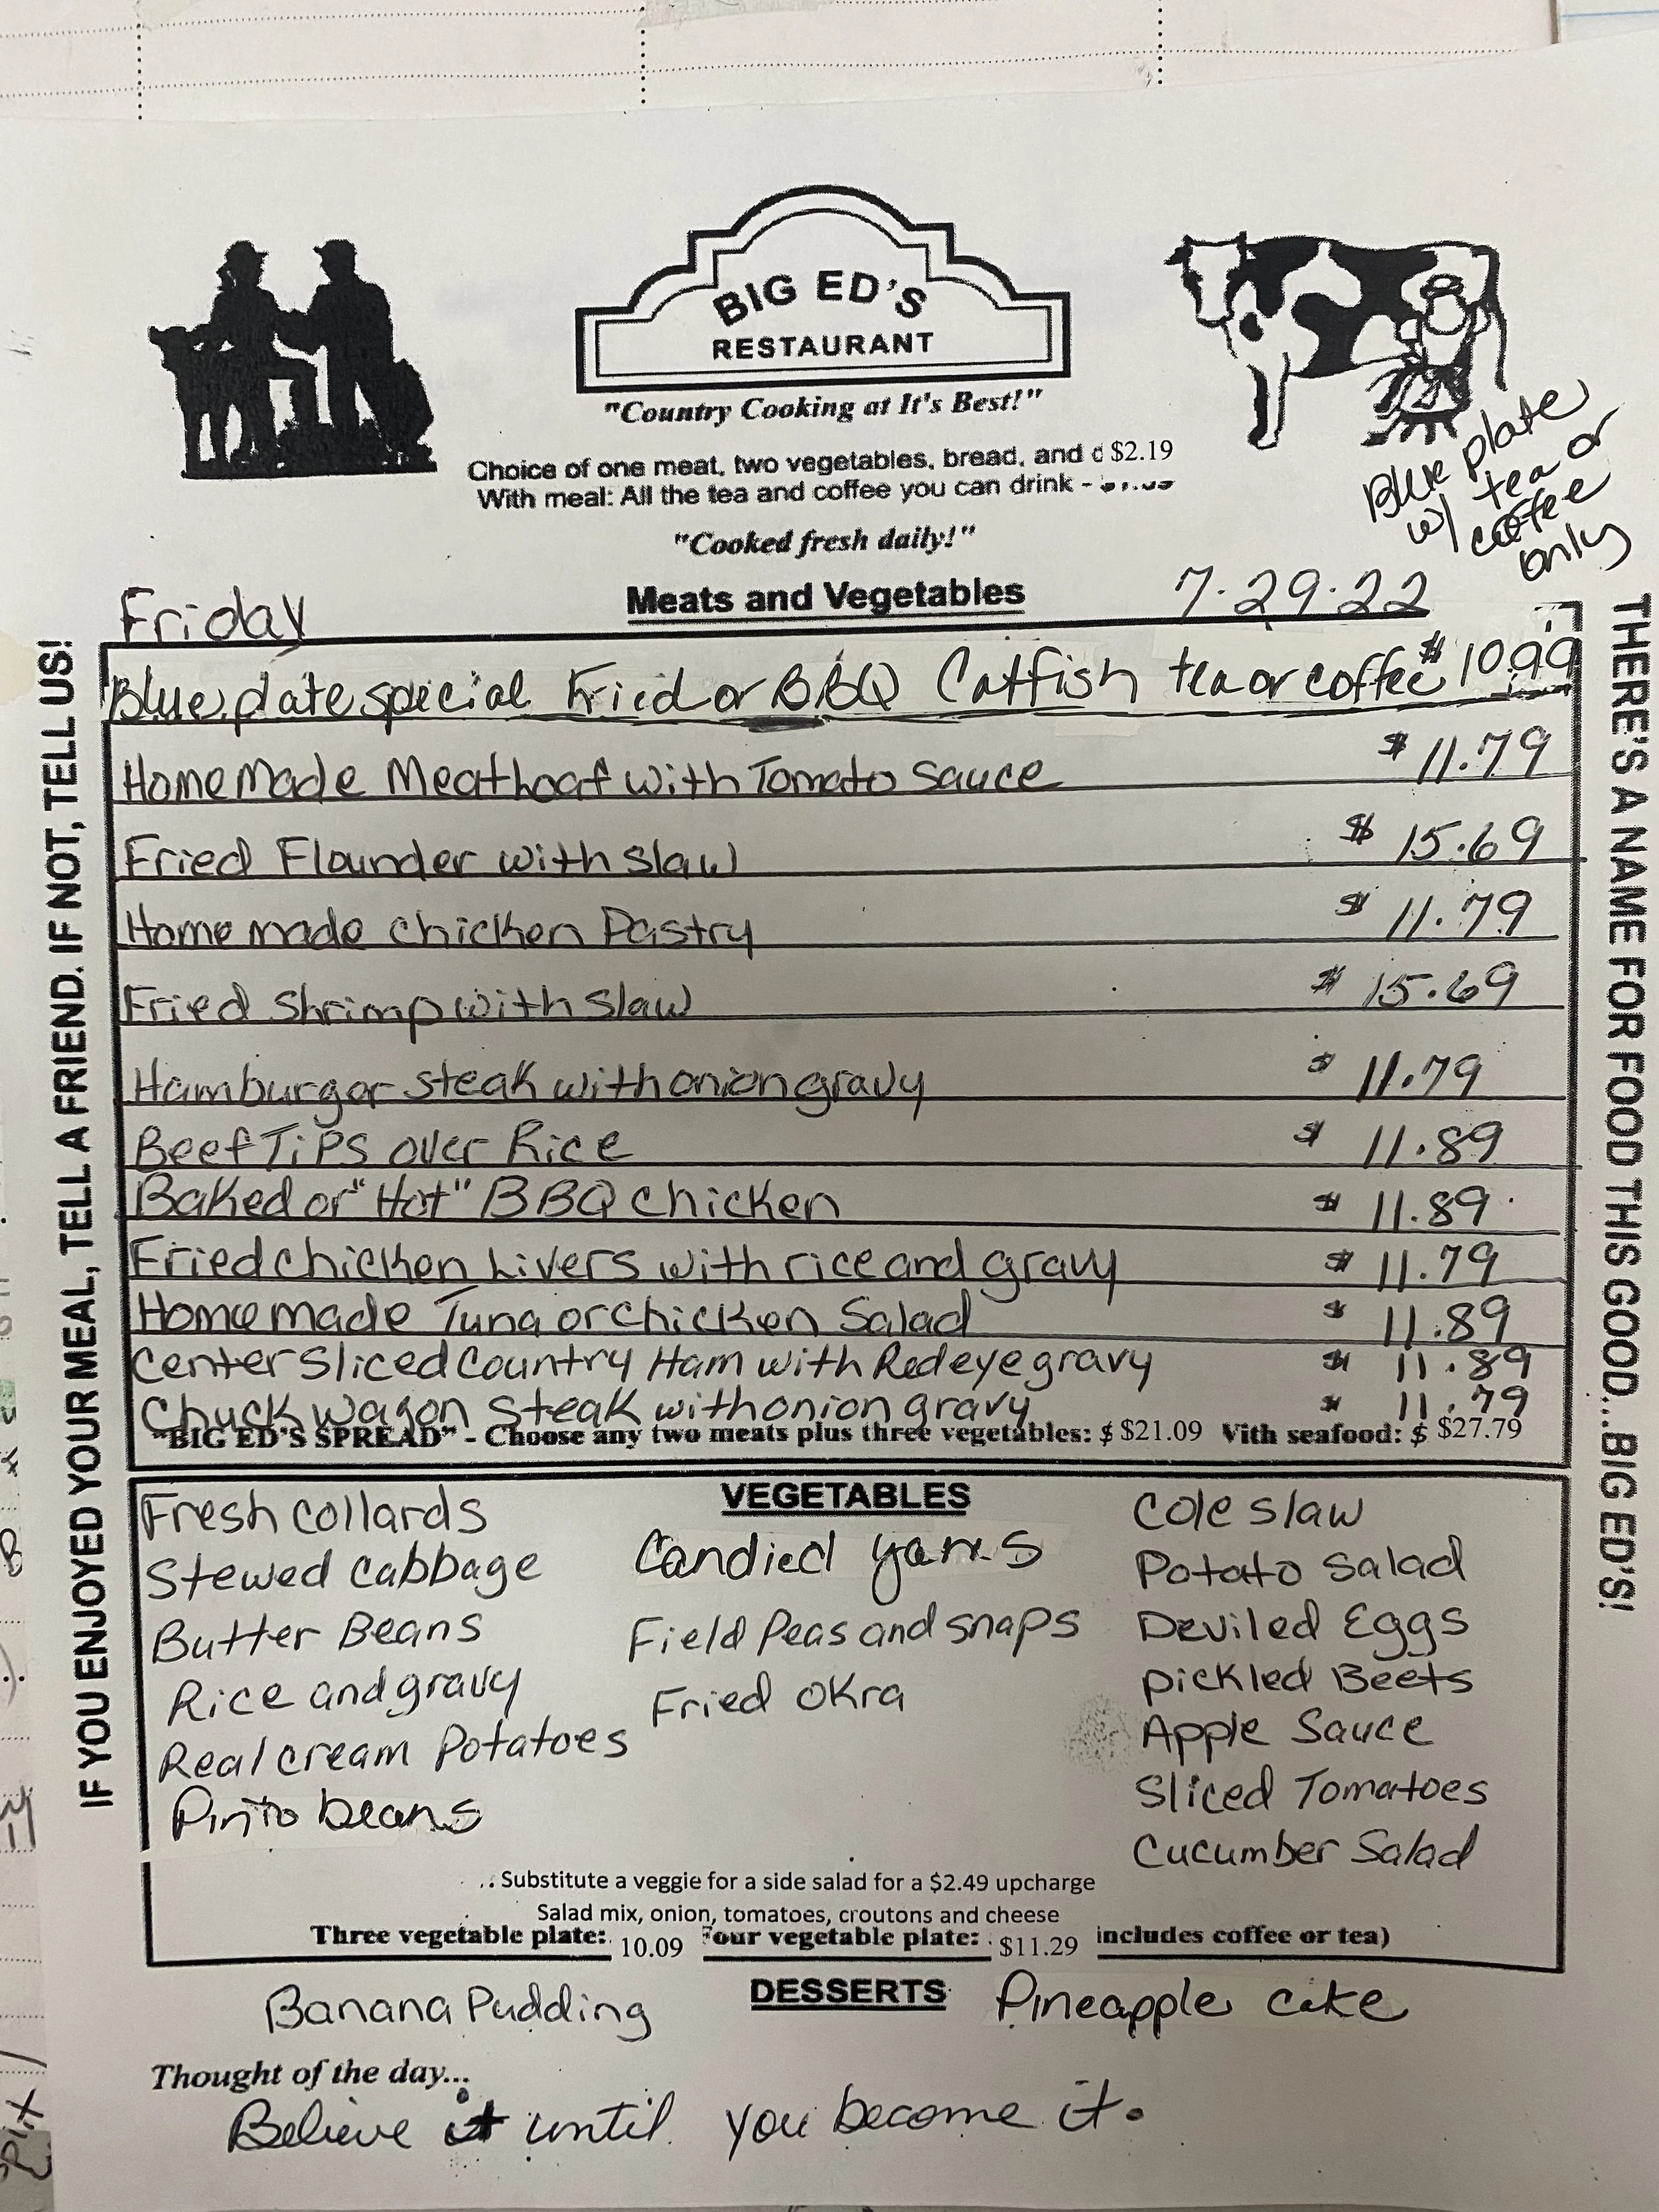 BIG ED'S
RESTAURANT
"Country Cooking at It's Best!"
Choice of one meat, two vegetables, bread, and d $2.19
With meal: All the tea and coffee you can drink -
"Cooked fresh daily!"
Blue plate
w/ tea or
coffee
only
Friday
Meats and Vegetables
7.29.22
Blue plate special Fried or BBQ Catfish tea or coffee $10.99
Homemade Meathoaf with Tomato Sauce $ 11.79
Fried Flounder with slaw $ 15.69
Home made chicken Pastry $ 11.79
Fried Shrimp with Slaw $ 15.69
Hamburger steak with onion gravy $ 11.79
Beef Tips over Rice $ 11.89
Baked or "Hot" BBQ chicken $ 11.89
Fried chicken Livers with rice and gravy $ 11.79
Home made Tuna or chicken Salad $ 11.89
Center Sliced Country Ham with Redeye gravy $ 11.89
Chuck wagon steak with onion gravy $ 11.79
"BIG ED'S SPREAD" - Choose any two meats plus three vegetables: $ $21.09 Vith seafood: $ $27.79
VEGETABLES
Fresh collards
Stewed cabbage
Butter Beans
Rice and gravy
Real cream Potatoes
Pinto beans
Candied yams
Field Peas and snaps
Fried Okra
Cole slaw
Potato salad
Deviled Eggs
Pickled Beets
Apple Sauce
Sliced Tomatoes
Cucumber Salad
Substitute a veggie for a side salad for a $2.49 upcharge
Salad mix, onion, tomatoes, croutons and cheese
Three vegetable plate: 10.09 Four vegetable plate: $11.29 includes coffee or tea)
DESSERTS
Banana Pudding
Pineapple cake
Thought of the day...
Believe it until you become it.
IF YOU ENJOYED YOUR MEAL, TELL A FRIEND. IF NOT, TELL US!
THERE'S A NAME FOR FOOD THIS GOOD....BIG ED'S!